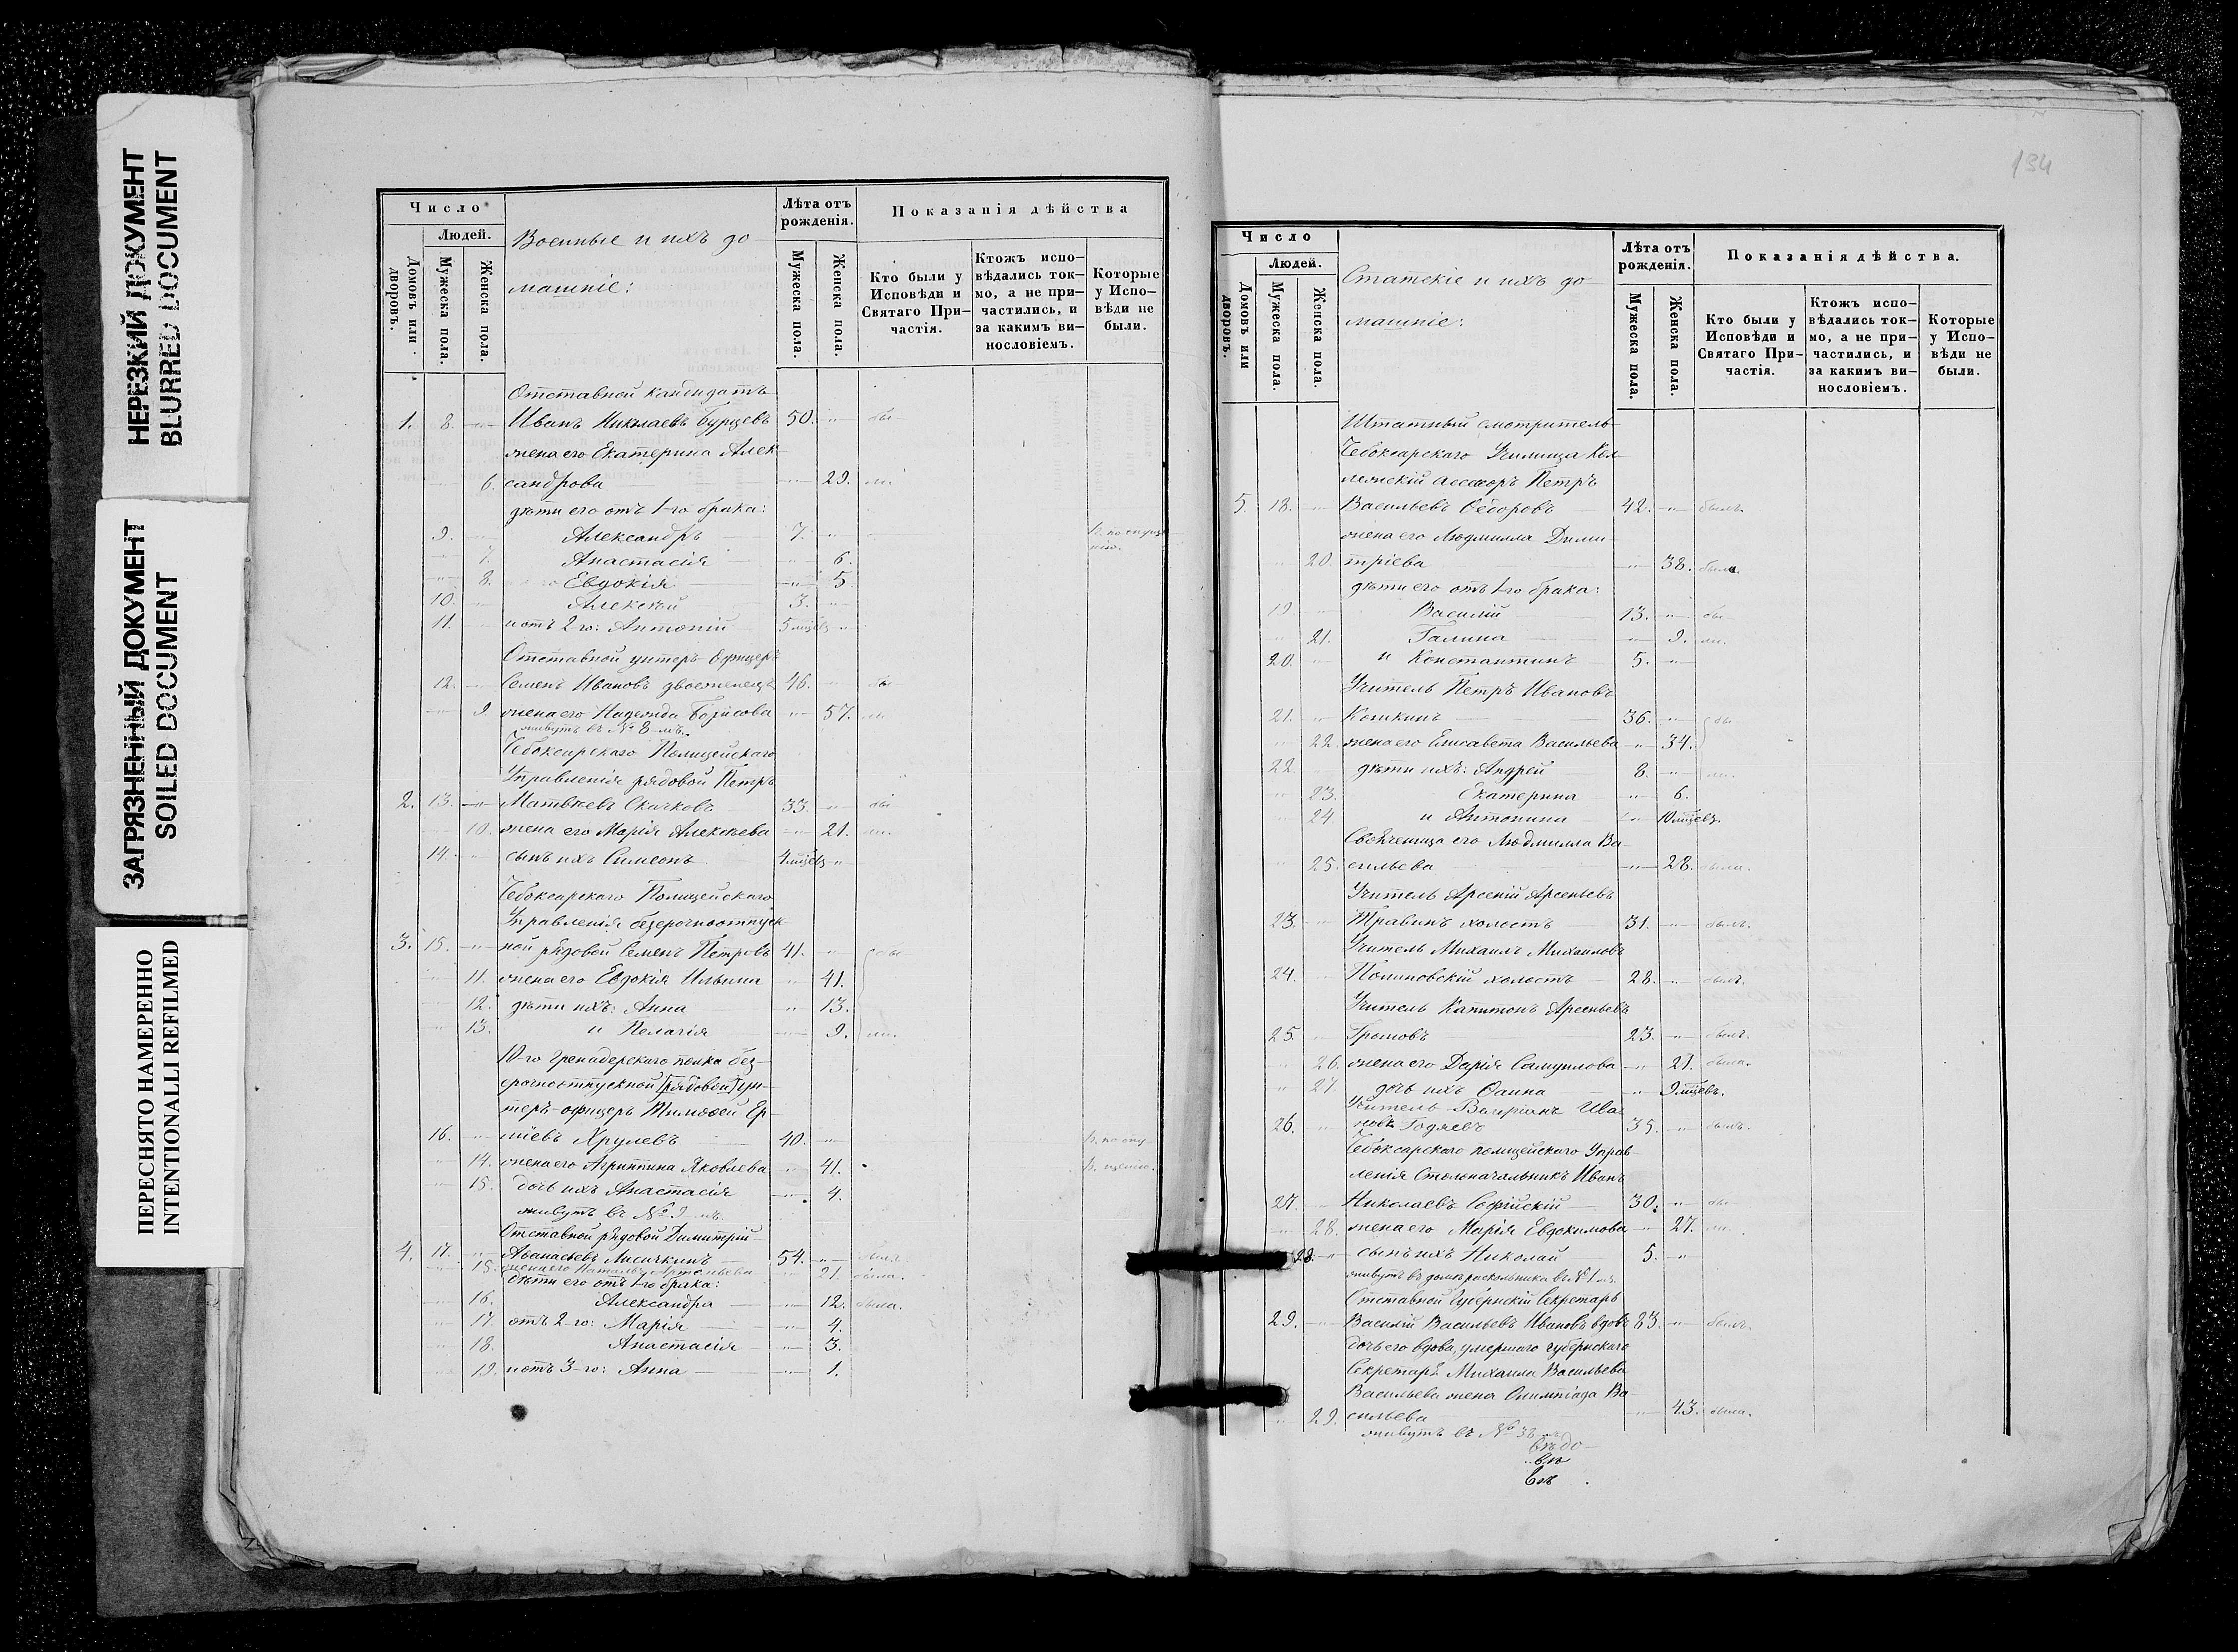 НЕРЕЗКИЙ ДОКУМЕНТ
BLURRED DOCUMENT
ЗАГРЯЗНЕННЫЙ ДОКУМЕНТ
SOILED DOCUMENT
ПЕРЕСНЯТО НАМЕРЕННО
INTENTIONALLI REFILMED
Число
Людей.
Домовъ или дворовъ.
Мужеска пола.
Женска пола.
Военные и ихъ до-
машніе:
Лѣта отъ рожденія.
Мужеска пола.
Женска пола.
Показанія дѣйства
Кто были у Исповѣди и Святаго При-частія.
Ктожъ испо-вѣдались ток-мо, а не при-частились, и за какимъ ви-нословіемъ.
Которые у Испо-вѣди не были.
Отставной кандидатъ
1. 8. Иванъ Николаевъ Бурцевъ 50. бы-
жена его Екатерина Алек-
6. сандрова 29. ли.
дѣти его отъ 1-го брака:
9. Александръ 7.
7. Анастасія 6.
8. Евдокія 5.
10. Алексѣй 3.
11. и отъ 2-го: Антоній 5 мцевъ
Отставной унтеръ-офицеръ
12. Семенъ Ивановъ двоеженецъ 46. бы-
9. жена его Надежда Борисова 57. ли
живутъ въ № 8-мъ.
Чебоксарскаго Полицейскаго
Управленія рядовой Петръ
2. 13. Матвѣевъ Скачковъ 33. бы-
10. жена его Марія Алексѣева 21. ли.
14. сынъ ихъ Симеонъ 4 мцевъ
Чебоксарскаго Полицейскаго
Управленія безсрочноотпуск-
3. 15. ной рядовой Семенъ Петровъ 41. бы-
11. жена его Евдокія Ильина 41.
12. дѣти ихъ: Анна 13.
13. и Пелагія 9. ли.
10-го гренадерскаго полка без-
срочноотпускной (рядовой) ун-
теръ-офицеръ Тимоѳей Ер-
16. миевъ Хрулевъ 40.
14. жена его Агриппина Яковлева 41.
15. дочь ихъ Анастасія 4.
живутъ въ № 9-мъ.
Отставной рядовой Димитрій
4. 17. Аѳанасьевъ Лисичкинъ 54. былъ
15. жена его Наталья Артемьева 21. была.
дѣти его отъ 1-го брака:
16. Александра 12. была.
17. отъ 2-го: Марія 4.
18. Анастасія 3.
19. и отъ 3-го: Анна 1.
134
Число
Людей.
Домовъ или дворовъ.
Мужеска пола.
Женска пола.
Статскіе и ихъ до-
машніе:
Лѣта отъ рожденія.
Мужеска пола.
Женска пола.
Показанія дѣйства.
Кто были у Исповѣди и Святаго При-частія.
Ктожъ испо-вѣдались ток-мо, а не при-частились, и за какимъ ви-нословіемъ.
Которые у Испо-вѣди не были.
Штатный смотритель
Чебоксарскаго Училища Кол-
лежскій ассесоръ Петръ
5. 18. Васильевъ Ѳедоровъ 42. былъ.
жена его Людмилла Дими-
20. тріева 38. была.
дѣти его отъ 1-го брака:
19 Василій 13. бы-
21. Галина 9. ли.
20. и Константинъ 5.
Учитель Петръ Ивановъ
21. Кошкинъ 36. бы-
22. жена его Елисавета Васильева 34.
22. дѣти ихъ: Андрей 8. ли.
23. Екатерина 6.
24. и Антонина 10 мцевъ.
Свояченица его Людмилла Ва-
25. сильева 28. была.
Учитель Арсеній Арсеньевъ
23. Травинъ холостъ 31. былъ.
Учитель Михаилъ Михаиловъ
24. Полиновскій холостъ 28. былъ.
Учитель Капитонъ Арсеньевъ
25. Громовъ 23. былъ.
26. жена его Дарія Самуилова 21. была.
27. дочь ихъ Фаина 9 мцевъ.
Учитель Валеріанъ Ива-
26. новъ Годяевъ 35. былъ.
Чебоксарскаго полицейскаго Управ-
ленія Столоначальникъ Иванъ
27. Николаевъ Софійскій 30. бы-
28. жена его Марія Евдокимова 27. ли.
28. сынъ ихъ Николай 5.
живутъ въ домѣ раскольника въ № 1-мъ.
Отставной Губернскій Секретарь
29. Василій Васильевъ Ивановъ вдовъ 83. былъ.
дочь его вдова, умершаго губернскаго
Секретаря Михаила Васильева
Васильева жена Олимпіада Ва-
29. сильева 43. была.
живутъ въ № 38-мъ